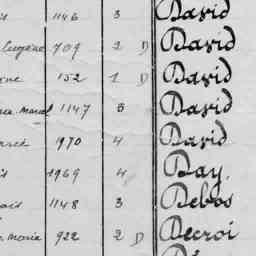 1146 3 David
Eugène 709 2 D David
152 1 D David
Marcel 1147 3 David
1970 4 David
1969 4 Day.
1148 3 Debos
Maria 922 2 D Decroi